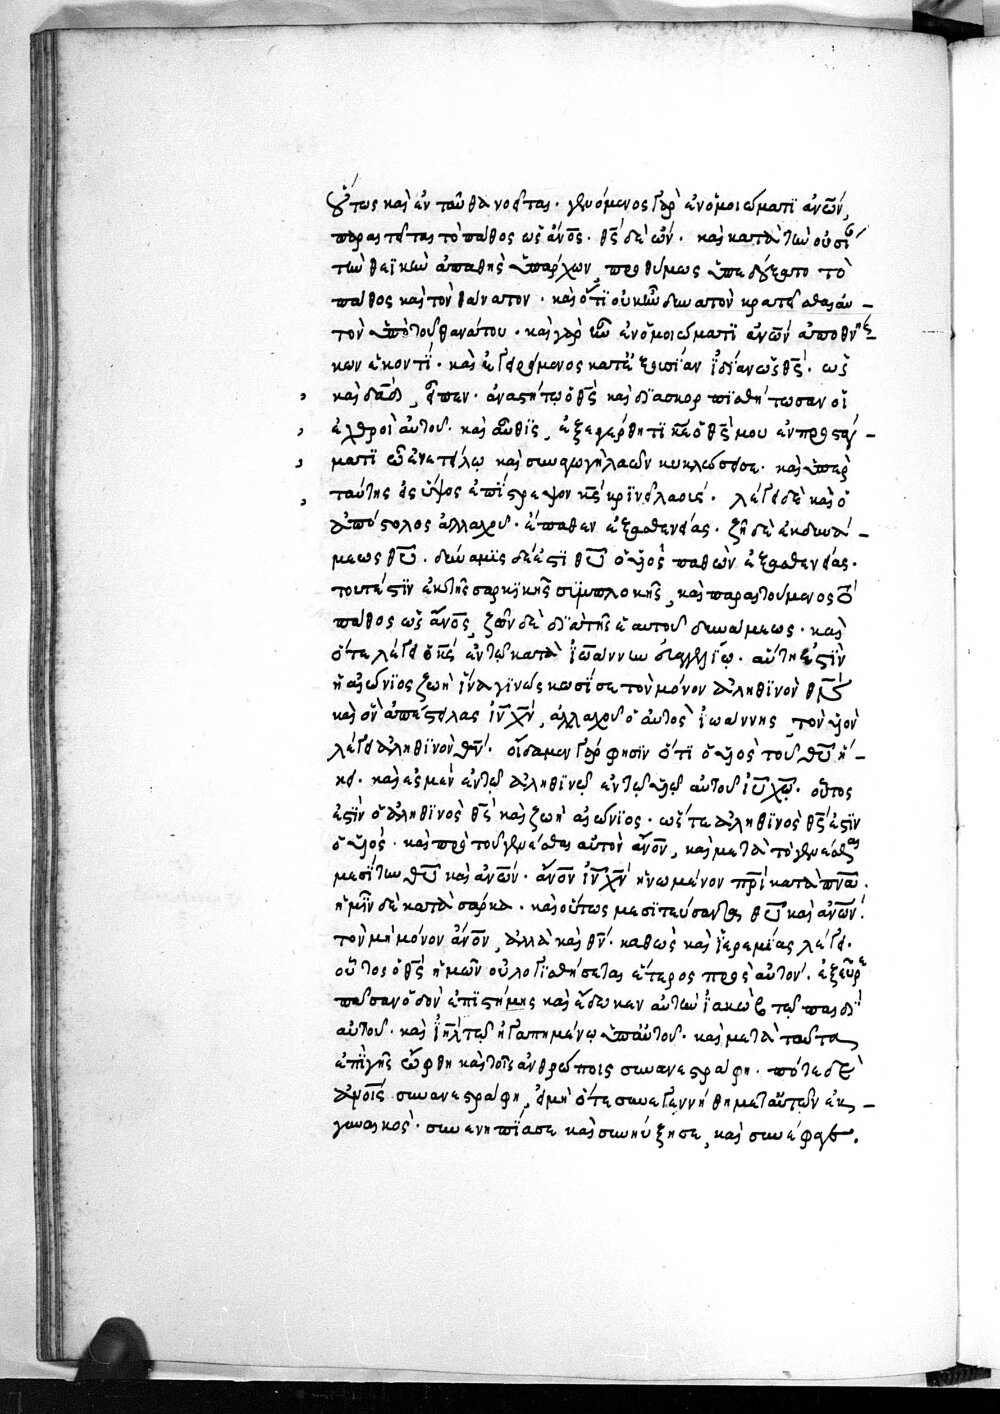 οὕτως καὶ ἐνταῦθα νοεῖται· γενόμενος γὰρ ἐν ὁμοιώματϊ ἀνῶν,
παραιτεῖται τὸ πάθος ὡς ἄνος· θς δὲ ὢν· καὶ κατὰ τὴν οὐσί
τὴν θεϊκὴν ἀπαθὴς ὑπάρχων, προθύμως ὑπεδέχετο τὸ
πάθος καὶ τὸν θάνατον· καὶ ὅτϊ οὐκ ἦν δυνατὸν κρατεῖσθαι αὐ–
τὸν ὑπὸ τοῦ θανάτου· καὶ γὰρ ἦν ἐν ὁμοιώματϊ ἀνῶν ἀποθνῄσ–
κων ἑκοντϊ· καὶ ἐγειρόμενος κατ' ἐξουσίαν ἰδίαν ὡς θς· ὡς
καὶ δαδ, εἶπεν· ἀναστήτω ὁ θς καὶ δϊασκορπϊσθήτωσαν οἱ
ἐχθροὶ αὐτοῦ· καὶ αὖθϊς, ἐξεγέρθητϊ κε ὁ θς μου ἐν προστάγ–
ματϊ ᾧ ἐνετείλω καὶ συναγωγὴ λαῶν κυκλώσει σε· καὶ ὑπὲρ
ταύτης εἰς ὕψος ἐπίστρεψον κς κρϊνεῖ λαούς· λέγει δὲ καὶ ὁ
ἀπόστολος ἀλλαχοῦ· ἔπαθεν ἐξ ἀσθενείας· ζῇ δὲ ἐκ δυνά–
μεως θυ· δύναμϊς δέ ἐστϊ θυ ὁ υἱὸς παθὼν ἐξ ἀσθενείας·
τουτέστϊν ἐκ τῆς σαρκϊκῆς συμπλοκῆς, καὶ παραιτούμενος τὸ
πάθος ὡς ἄνος, ζῶν δὲ δϊὰ τῆς ἑαυτοῦ δυνάμεως· καὶ
ὅτε λέγει ὁ κς ἐν τῷ κατὰ ἰωάννην εὐαγγελίῳ· αὕτη ἐστὶν
ἡ αἰώνϊος ζωὴ ἵνα γϊνώσκωσί σε τὸν μόνον ἀληθϊνὸν θν
καὶ ὃν ἀπέστειλας ιν χν, ἀλλαχοῦ ὁ αὐτὸς ἰωάννης, τὸν υἱὸν
λέγει ἀληθϊνὸν θν· οἴδαμεν γάρ φησϊν ὅτϊ ὁ υἱὸς τοῦ θυ ἥ–
κει· καὶ ἐσμὲν ἐν τῷ ἀληθϊνῷ ἐν τῷ υἱῷ αὐτοῦ ιυ χω· οὗτος
ἐστὶν ὁ ἀληθϊνὸς θς καὶ ζωὴ αἰώνϊος· ὥστε ἀληθϊνὸς θς ἐστὶν
ὁ υἱὸς· καὶ πρὸ τοῦ γενέσθαι αὐτὸν ἄνον, καὶ μετὰ τὸ γενέσθαι
μεσίτην θυ καὶ ἀνῶν· ἄνον ιν χν ἡνωμένον πρϊ κατὰ πνα·
ἡμῖν δὲ κατὰ σάρκα· καὶ οὕτως μεσϊτεύσαντα θυ καὶ ἀνῶν·
τὸν μὴ μόνον ἄνον, ἀλλὰ καὶ θν· καθὼς καὶ ἱερεμίας λέγει·
οὗτος ὁ θς ἡμῶν οὐ λογϊσθήσεται ἕτερος πρὸς αὐτόν· ἐξεῦρε
πᾶσαν ὁδὸν ἐπϊστήμης καὶ ἔδωκεν αὐτὴν ἰακὼβ τῷ παιδὶ
αὐτοῦ· καὶ ιηλ τῷ ἠγαπημένῳ ὑπ' αὐτοῦ· καὶ μετὰ ταῦτα
ἐπὶ γῆς ὤφθη καὶ τοῖς ἀνθρώποις συνανεστράφη· πότε δὲ
ἀνοις συνανεστράφη, εἰ μὴ ὅτε συνεγεννήθη μετ' αὐτῶν ἐκ –
γυναικὸς· συνενηπίασε καὶ συνηύξησε, καὶ συνέφαγε.